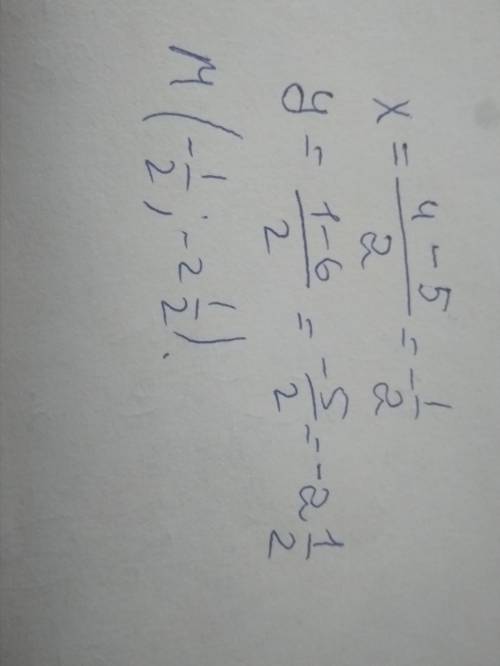 x = \frac{4-5}{2} = -\frac{1}{2}
y = \frac{1-6}{2} = \frac{-5}{2} = -2\frac{1}{2}
M (-\frac{1}{2}; -2\frac{1}{2}).